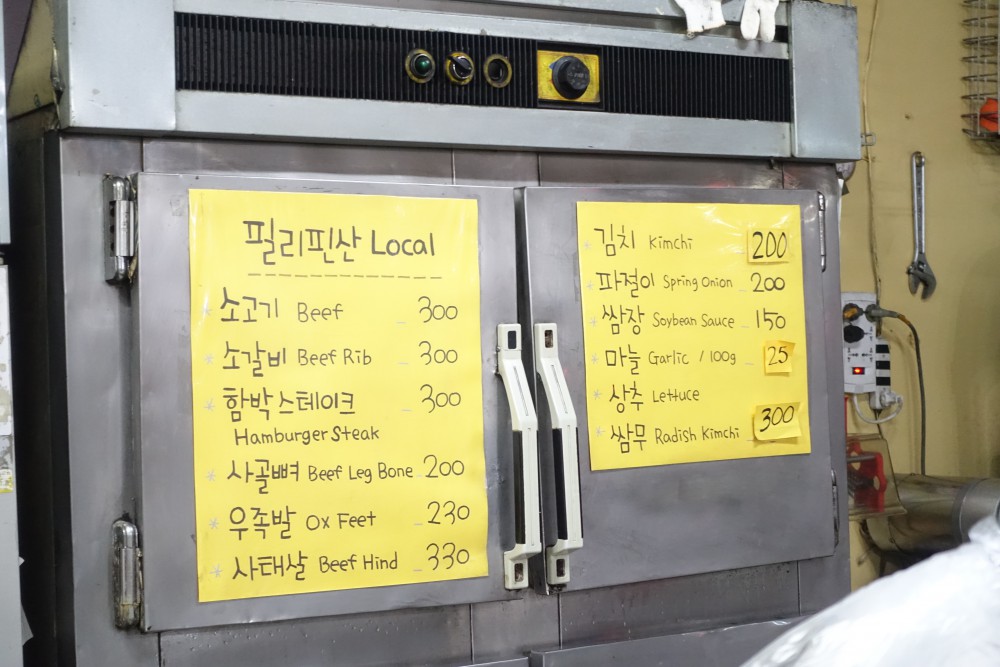 필리핀산 Local
* 소고기 Beef _ 300
* 소갈비 Beef Rib _ 300
* 함박스테이크 _ 300
Hamburger Steak
* 사골뼈 Beef Leg Bone 200
* 우족발 Ox Feet _ 230
* 사태살 Beef Hind _ 330
* 김치 Kimchi 200
* 파절이 Spring Onion _ 200
* 쌈장 Soybean Sauce _ 150
* 마늘 Garlic / 100g _ 25
* 상추 Lettuce
* 쌈무 Radish Kimchi _ 300